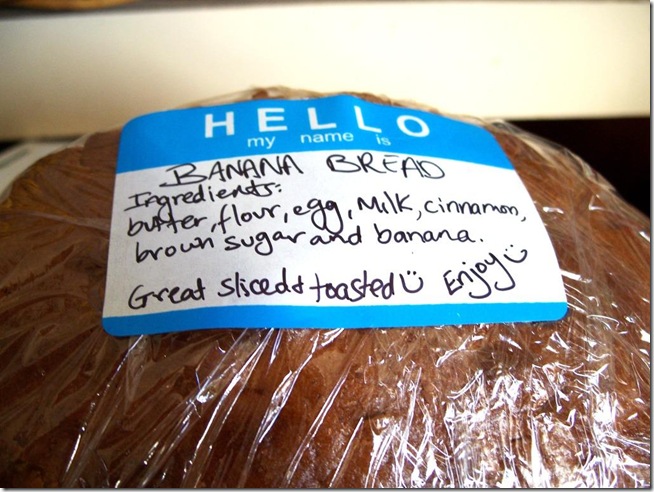 HELLO
my name is
BANANA BREAD
Ingredients:
butter, flour, egg, Milk, cinnamon,
brown sugar and banana.
Great sliced & toasted Enjoy